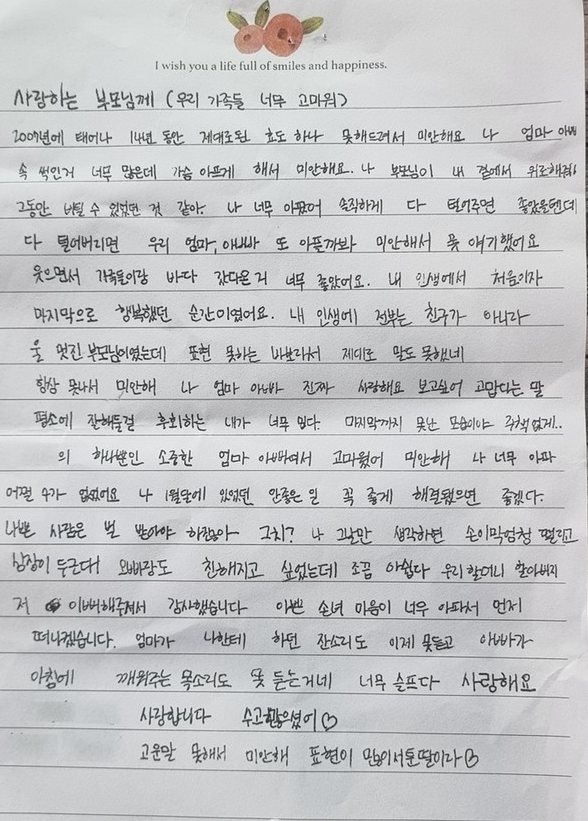 I wish you a life full of smiles and happiness.
사랑하는 부모님께 (우리 가족들 너무 고마워)
2007년에 태어나 14년 동안 제대로된 효도 하나 못해드려서 미안해요 나 엄마 아빠
속 썩인거 너무 많은데 가슴 아프게 해서 미안해요. 나 부모님이 내 곁에서 위로해줘서
그동안 버틸 수 있었던 것 같아. 나 너무 아팠어 솔직하게 다 털어주면 좋았을텐데
다 털어버리면 우리 엄마, 아빠 또 아플까봐 미안해서 못 얘기했어요
웃으면서 가족들이랑 바다 갔다온 거 너무 좋았어요. 내 인생에서 처음이자
마지막으로 행복했던 순간이였어요. 내 인생에 전부는 친구가 아니라
울 멋진 부모님이였는데 표현 못하는 바보라서 제대로 말도 못했네
항상 못나서 미안해 나 엄마 아빠 진짜 사랑해요 보고싶어 고맙다는 말
평소에 잔해둘걸 후회하는 내가 너무 밉다. 마지막까지 못난 모습이야 주책 없게..
의 하나뿐인 소중한 엄마 아빠여서 고마웠어 미안해 나 너무 아파
어쩔 수가 없었어요 나 1월달에 있었던 안좋은 일 꼭 좋게 해결됐으면 좋겠다.
나쁜 사람은 벌 받아야 하잖아 그치? 나 그날만 생각하면 손이 막 엄청 떨리고
심장이 두근대! 오빠랑도 친해지고 싶었는데 조끔 아쉽다 우리 할머니 할아버지
저 이뻐해주셔서 감사했습니다 이쁜 손녀 마음이 너무 아파서 먼저
떠나겠습니다. 엄마가 나한테 하던 잔소리도 이제 못듣고 아빠가
아침에 깨워주는 목소리도 못 듣는거네 너무 슬프다 사랑해요
사랑합니다 수고많으셨어♡
고운말 못해서 미안해 표현이 많이 서툰 딸이라♡